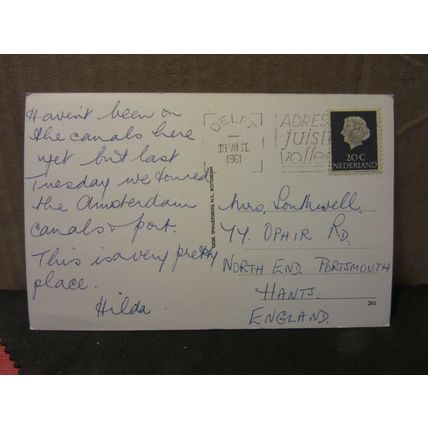 Haven't been on
the canals here
yet but last
Tuesday we toured
the Amsterdam
canals & port.
This is a very pretty
place.
Hilda.
DELFT
1961
ADRES
juist
volle
20 C
NEDERLAND
GEBR. SPANJERSBERG N.V., ROTTERDAM
Mrs.
OPHIR RD.
NORTH END. PORTSMOUTH
HANTS.
ENGLAND.
261